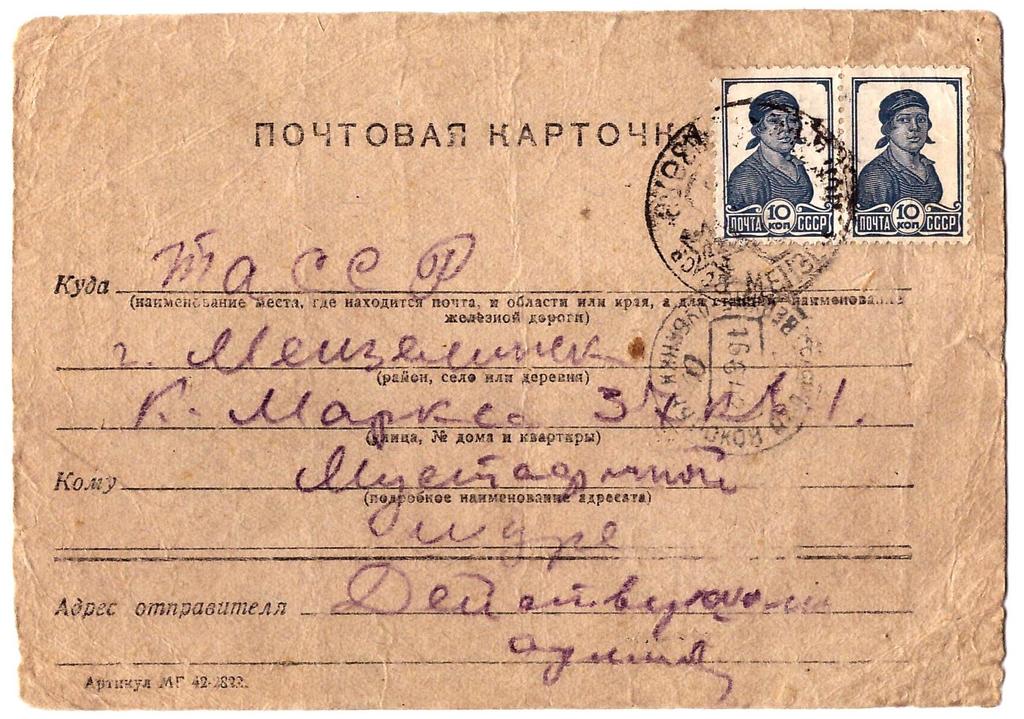 ПОЧТОВАЯ КАРТОЧКА
10 КОП ПОЧТА СССР
10 КОП ПОЧТА СССР
Куда ТАССР
(наименование места, где находится почта, и области или края, а для станций наименование
железной дороги)
г. Мензелинск
(район, село или деревня)
К. Маркса 34 кв 1.
(улица, № дома и квартиры)
Кому Мустафиной
(подробное наименование адресата)
Адрес отправителя Действующая
армия
Артикул МГ 42-